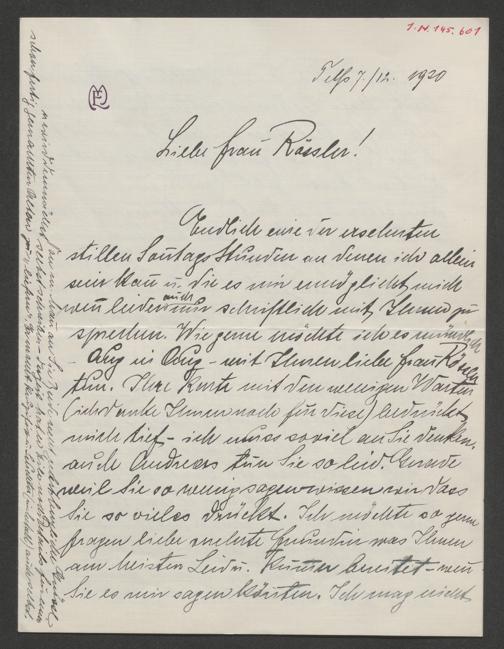 I.N. 145.601
Telfs 7./12. 1920
Liebe Frau Rössler!
Endlich eine der ersehnten
stillen Sonntags Stunden an denen ich allein
sein kann u. die es mir ermöglicht mich
wenn leider auch nur schriftlich mit Ihnen zu
sprechen. Wie gerne möchte ich es mündlich
- Aug in Aug - mit Ihnen liebe Frau Rössler
tun. Ihre Karte mit den wenigen Worten
(ich danke Ihnen noch für diese) bedrückt
mich tief - ich muss soviel an Sie denken.
auch Andreas tun Sie so leid. Gerade
weil Sie so wenig sagen wissen wir dass
Sie so vieles drückt. Ich möchte so gerne
fragen liebe verehrte Freundin was Ihnen
am meisten Leid u. Kummer bereitet - wenn
Sie es mir sagen könnten. Ich mag nicht